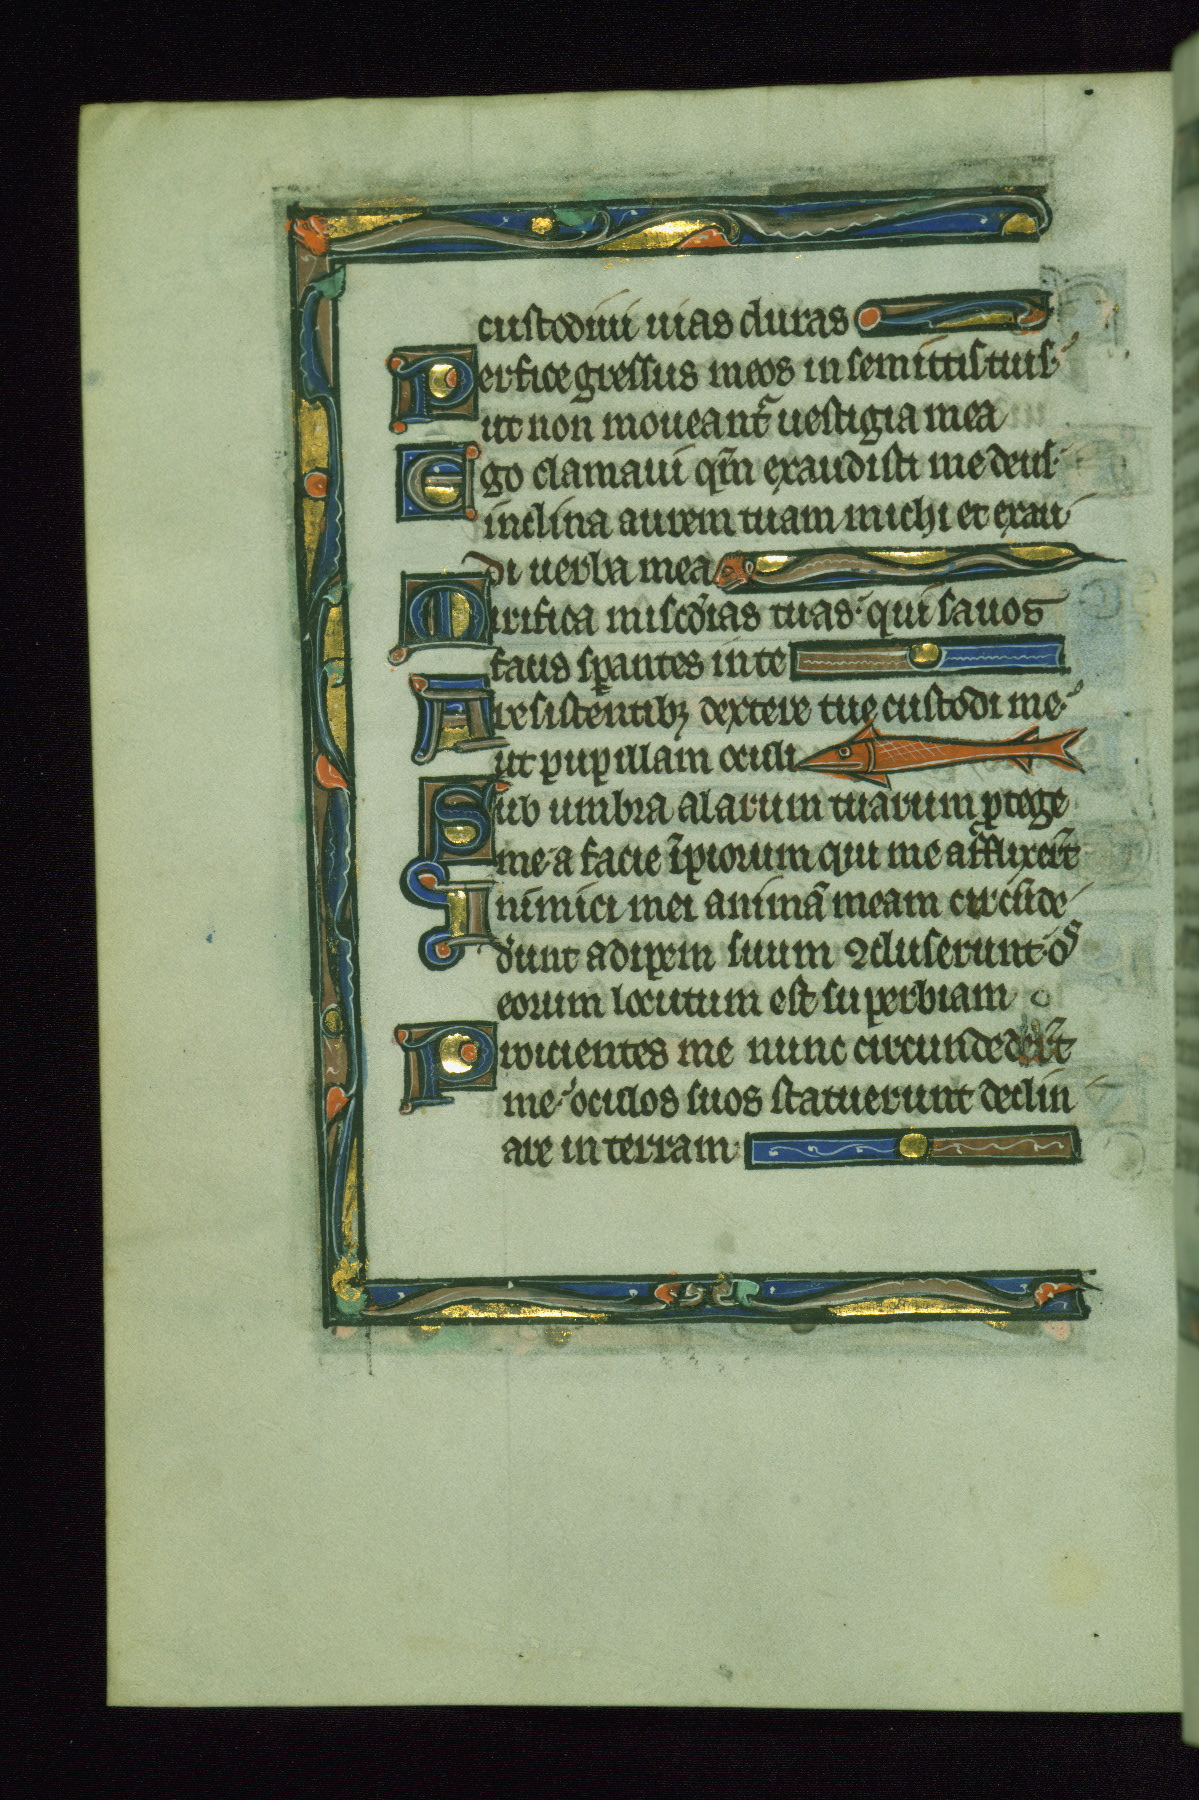 custodiui uias duras
Perfice gressus meos in semittis tuis·
ut non moueant᷑ uestigia mea
Ego clamaui qm̃ exaudisti me deus·
inclina aurem tuam michi et exau
di uerba mea
Mirifica misc̃dias tuas· qui saluos
facis sꝑantes in te
A resistentibꝫ dextere tue custodi me·
ut pupillam oculi
Sub umbra alarum tuarum ꝓtege
me· a facie ĩpiorum qui me afflixer̃t
Inimici mei animã meam circũde
der̃unt adipem suum ꝯcluserunt· os
eorum locutum est superbiam
Proicientes me nunc circundeder̃t
me· oculos suos statuerunt declin
are in terram·